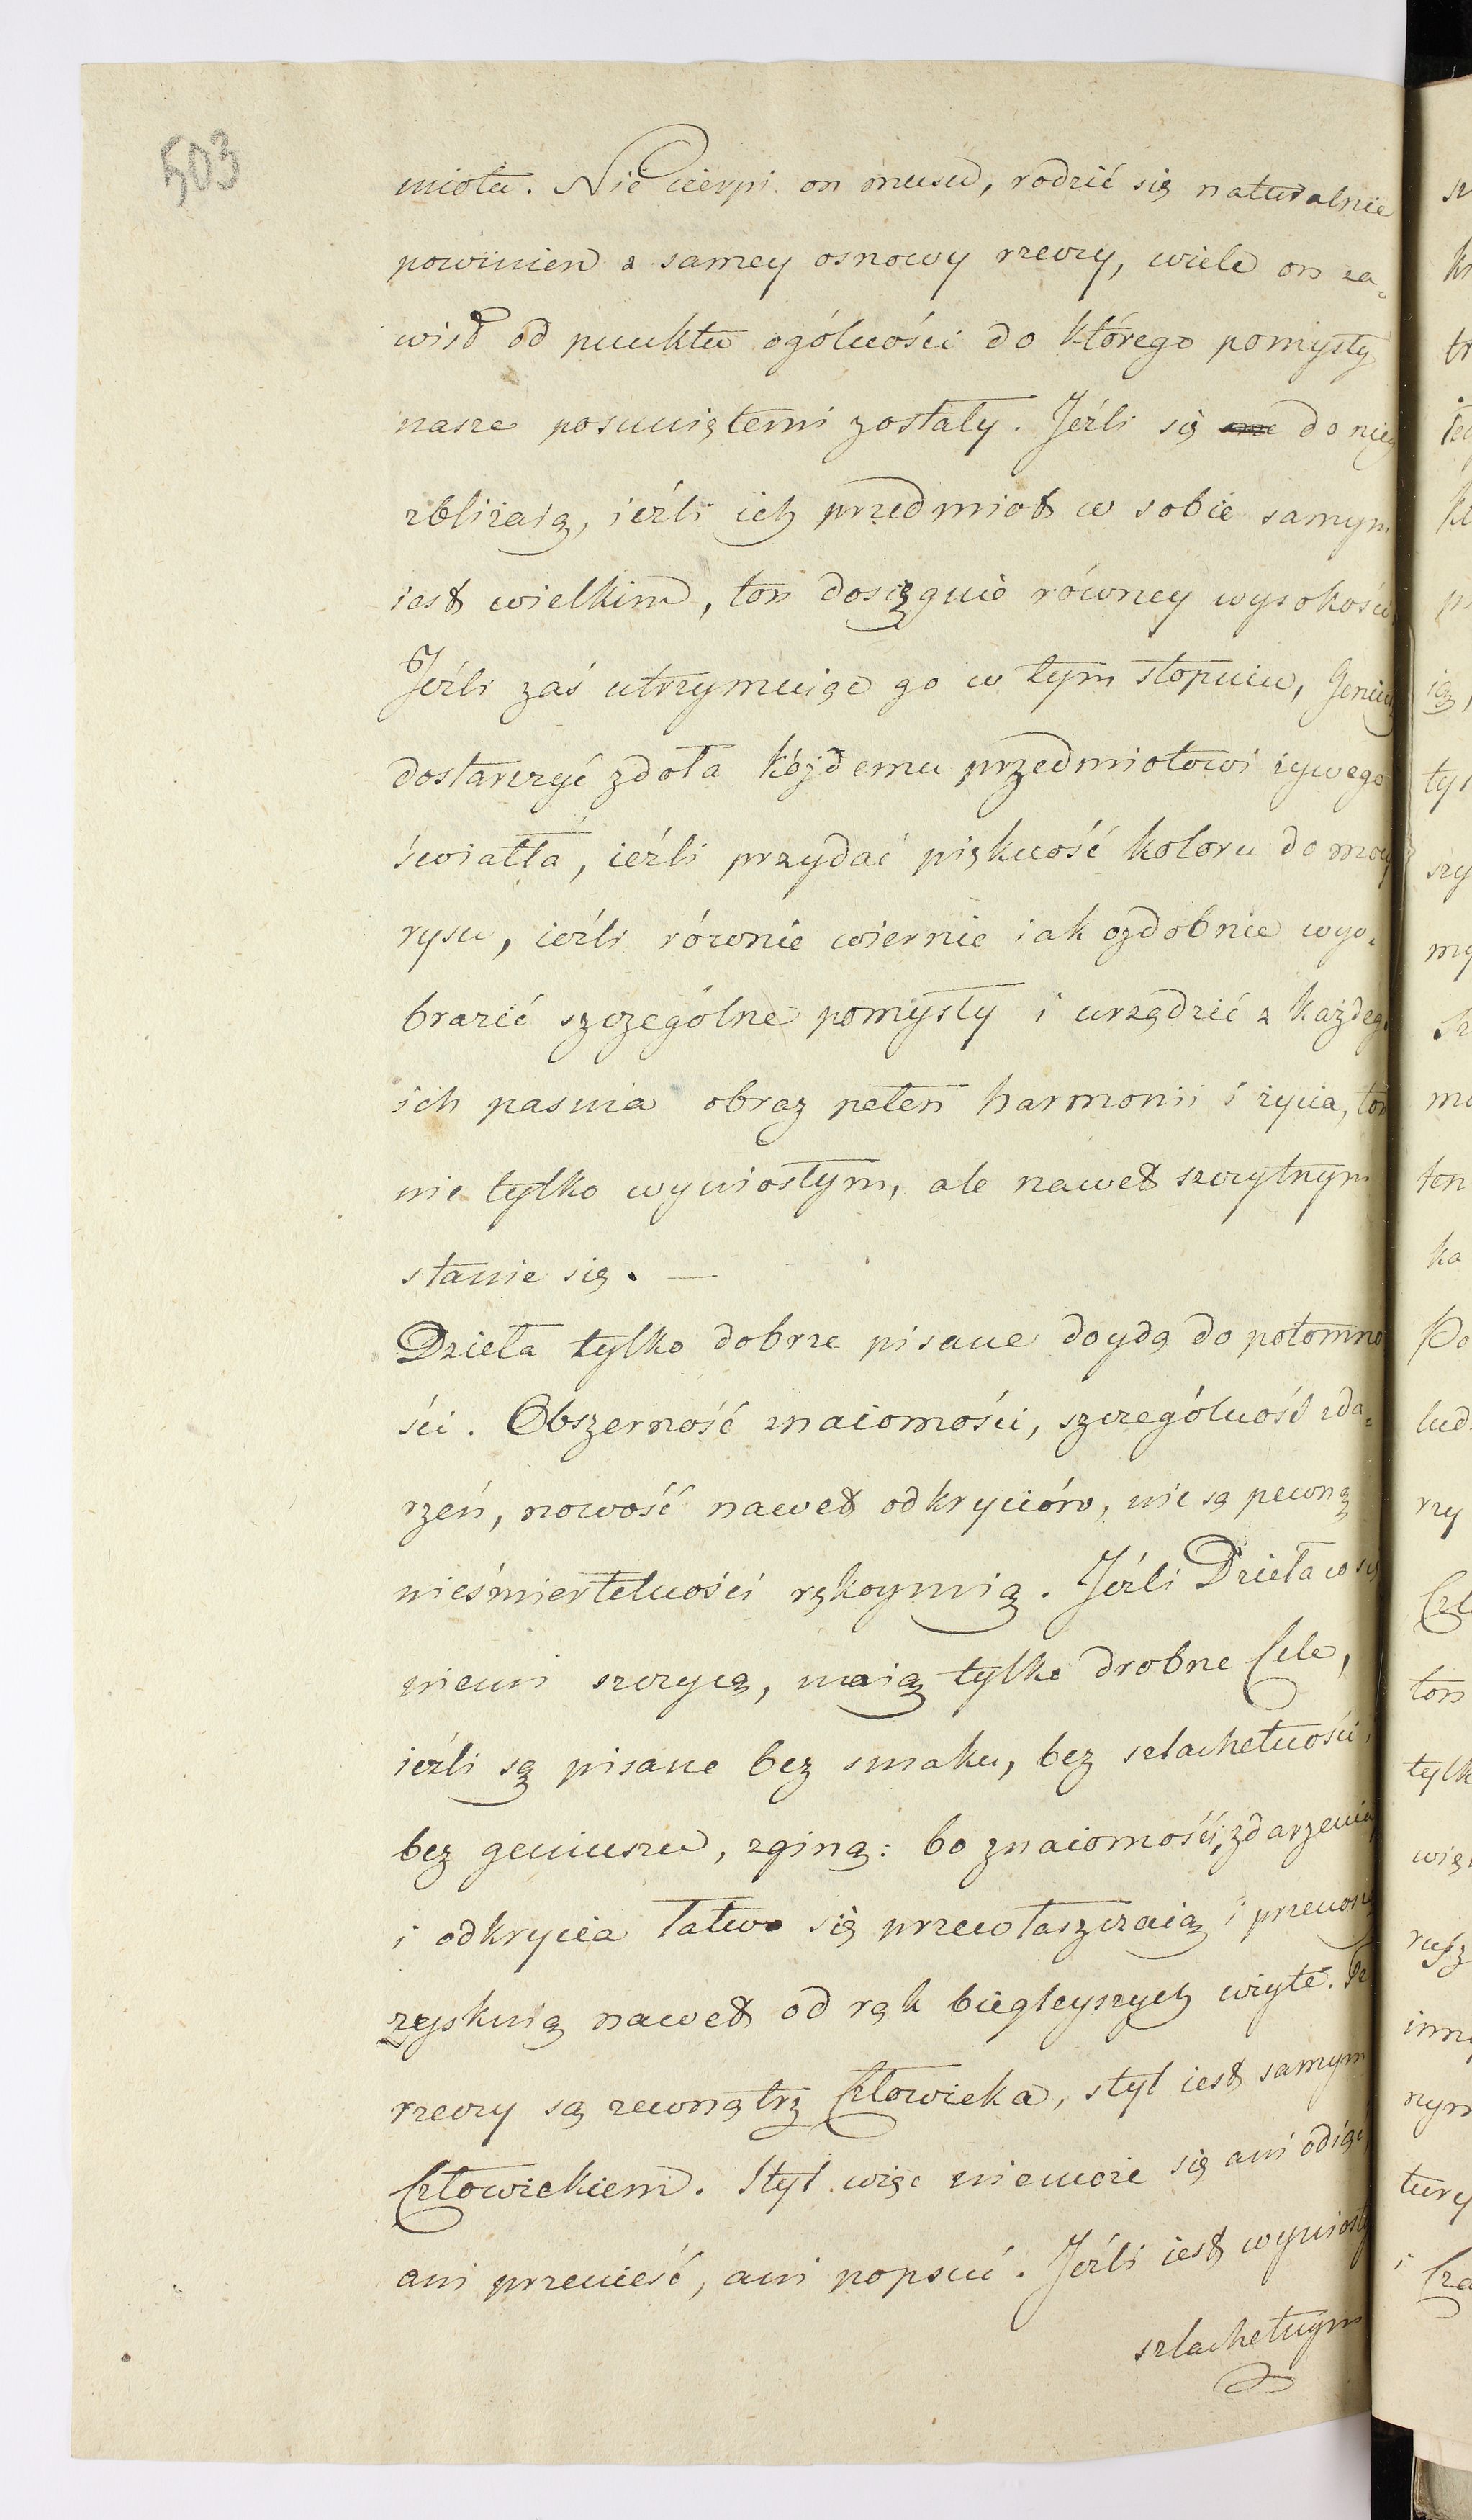 503
miotu. Nie cierpi on musu, rodzić się naturalnie
powinien z samey osnowy rzeczy, wiele on za=
wisł od punktu ogólności do którego pomysły
nasze posuniętemi zostały. Jeźli się do niey
zbliżaią, ieźli ich przedmiot w sobie samym
iest wielkim, ton dosięgnie równey wysokości
Jeźli zaś utrzymuiąc go w tym stopniu, Geniusz
dostarczyć zdoła kójdemu przedmiotowi żywego
światła, ieźli przydać piękność koloru do mocy
rysu, ieźli równie wiernie iak ozdobnie wyo=
brazić szczególne pomysły i urządzić z każdego
ich pasma obraz pełen harmonii i życia, ton
nie tylko wyniosłym, ale nawet szczytnym
stanie się. —
Dzieła tylko dobrze pisane doydą do potomno
ści. Obszerność znaiomości, szczególność zda=
rzeń, nowość nawet odkryciów, nie są pewną
nieśmiertelności rękoymią. Jeźli Dzieła co się
niemi szczycą, maią tylko drobne Cele,
ieźli są pisane bez smaku, bez szlachetności,
bez geniuszu, zginą: bo znaiomości, zdarzenia
i odkrycia łatwo się przewłaszczaią i przenoszą
zyskuią nawet od rąk bieglejszych wzięte. Te
rzeczy są zewnątrz Człowieka, styl iest samym
Człowiekiem. Styl więc niemoże się ani odiąć,
ani przenieść, ani popsuć. Jeźli iest wyniosły
szlachetnym